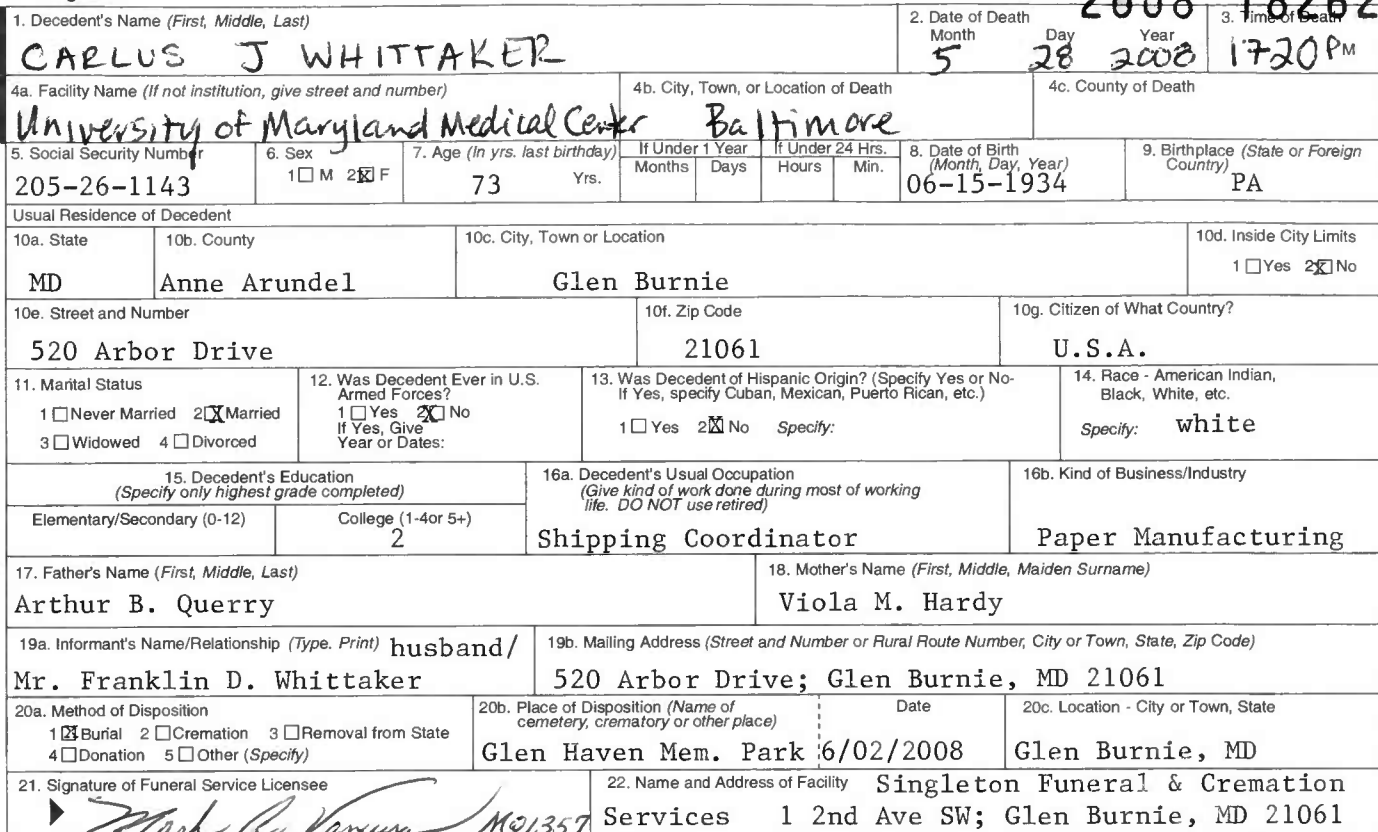 2008 18262
1. Decedent's Name (First, Middle, Last)
CARLUS J WHITTAKER
2. Date of Death
Month Day Year
5 28 2008
3. Time of Death
1720 PM
4a. Facility Name (If not institution, give street and number)
University of Maryland Medical Center
4b. City, Town, or Location of Death
Baltimore
4c. County of Death
5. Social Security Number
205-26-1143
6. Sex
1☐ M 2☒ F
7. Age (In yrs. last birthday)
73 Yrs.
If Under 1 Year
Months Days
If Under 24 Hrs.
Hours Min.
8. Date of Birth
(Month, Day, Year)
06-15-1934
9. Birthplace (State or Foreign
Country)
PA
Usual Residence of Decedent
10a. State
MD
10b. County
Anne Arundel
10c. City, Town or Location
Glen Burnie
10d. Inside City Limits
1 ☐ Yes 2☒ No
10e. Street and Number
520 Arbor Drive
10f. Zip Code
21061
10g. Citizen of What Country?
U.S.A.
11. Marital Status
1 ☐ Never Married 2☒ Married
3 ☐ Widowed 4 ☐ Divorced
12. Was Decedent Ever in U.S.
Armed Forces?
1 ☐ Yes 2☒ No
If Yes, Give
Year or Dates:
13. Was Decedent of Hispanic Origin? (Specify Yes or No-
If Yes, specify Cuban, Mexican, Puerto Rican, etc.)
1☐ Yes 2☒ No Specify:
14. Race - American Indian,
Black, White, etc.
Specify: white
15. Decedent's Education
(Specify only highest grade completed)
Elementary/Secondary (0-12)
College (1-4or 5+)
2
16a. Decedent's Usual Occupation
(Give kind of work done during most of working
life. DO NOT use retired)
Shipping Coordinator
16b. Kind of Business/Industry
Paper Manufacturing
17. Father's Name (First, Middle, Last)
Arthur B. Querry
18. Mother's Name (First, Middle, Maiden Surname)
Viola M. Hardy
19a. Informant's Name/Relationship (Type. Print) husband/
Mr. Franklin D. Whittaker
19b. Mailing Address (Street and Number or Rural Route Number, City or Town, State, Zip Code)
520 Arbor Drive; Glen Burnie, MD 21061
20a. Method of Disposition
1☒ Burial 2 ☐ Cremation 3 ☐ Removal from State
4☐ Donation 5☐ Other (Specify)
20b. Place of Disposition (Name of
cemetery, crematory or other place)
Glen Haven Mem. Park
Date
6/02/2008
20c. Location - City or Town, State
Glen Burnie, MD
21. Signature of Funeral Service Licensee
M01357
22. Name and Address of Facility Singleton Funeral & Cremation
Services 1 2nd Ave SW; Glen Burnie, MD 21061